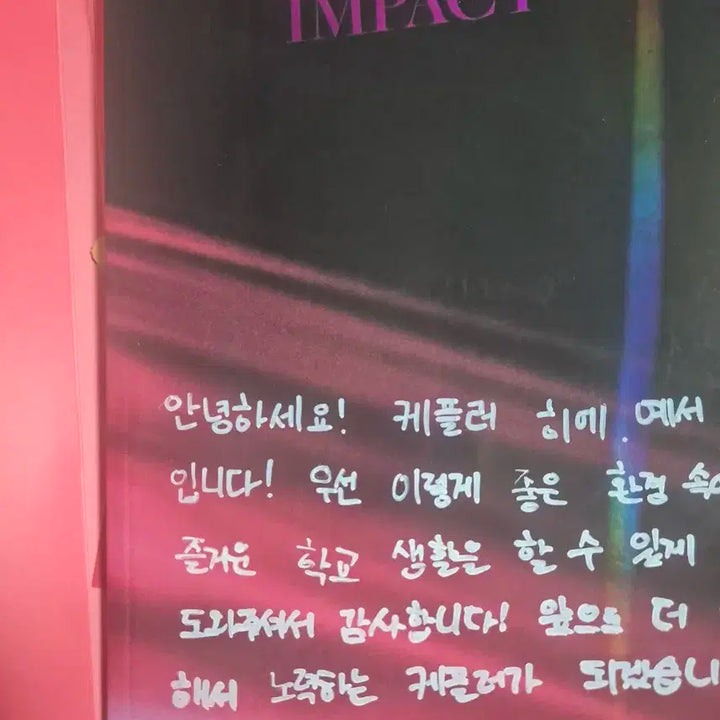 IMPACT
안녕하세요! 케플러 히에. 예서
입니다! 우선 이렇게 좋은 환경 속
즐거운 학교 생활은 할 수 있게
도와주셔서 감사합니다! 앞으로 더
해서 노력하는 케플러가 되겠습니